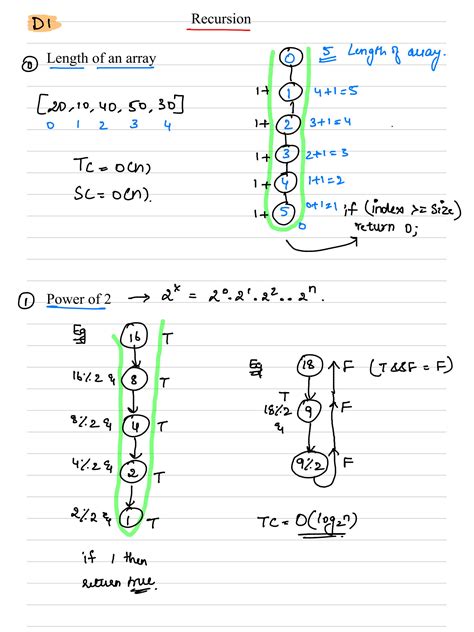 D1
Recursion
0 Length of an array
[20, 10, 40, 50, 30]
0 1 2 3 4
TC = O(n)
SC = O(n).
0 5 Length of array.
1+ 1 4+1=5
1+ 2 3+1=4
1+ 3 2+1=3
1+ 4 1+1=2
1+ 5 0+1=1 if (index >= size)
0 return 0;
1 Power of 2 → 2^x = 2^0.2^1.2^2..2^n.
Eg 16 T
16%2 & 8 T
8%2 & 4 T
4%2 & 2 T
2%2 & 1 T
if 1 then
return true.
Eg 18 F (T&&F = F)
T
18%2 9 F
&
9%2 F
TC = O(log₂n)